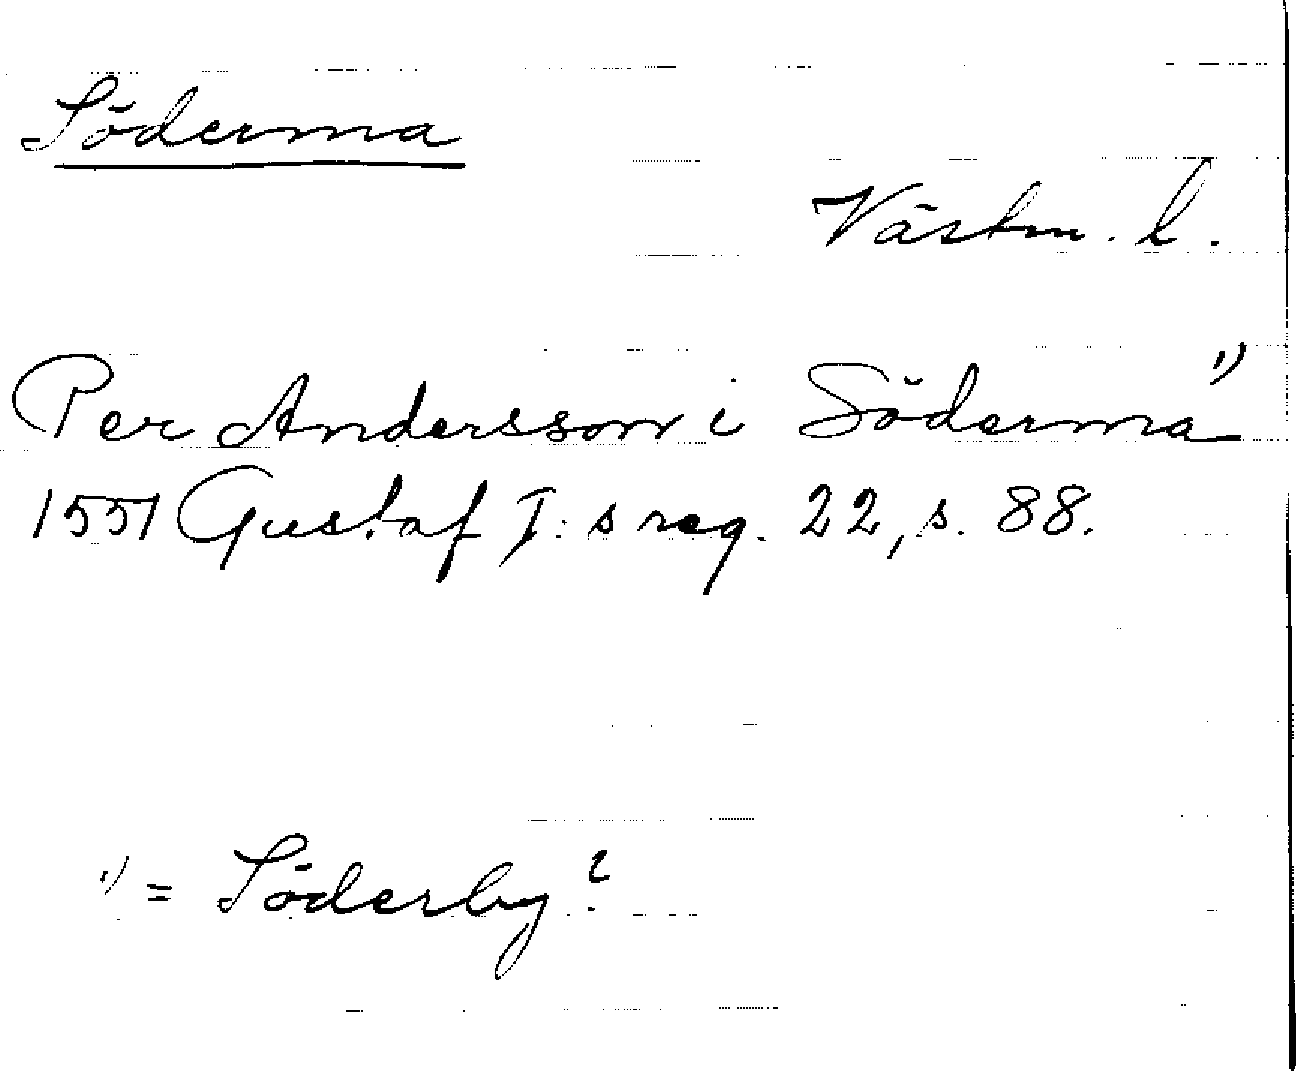 Söderma
Västm. l.
Per Andersson i Söderma 1)
1551 Gustaf I:s reg. 22, s. 88.
1) = Söderby?